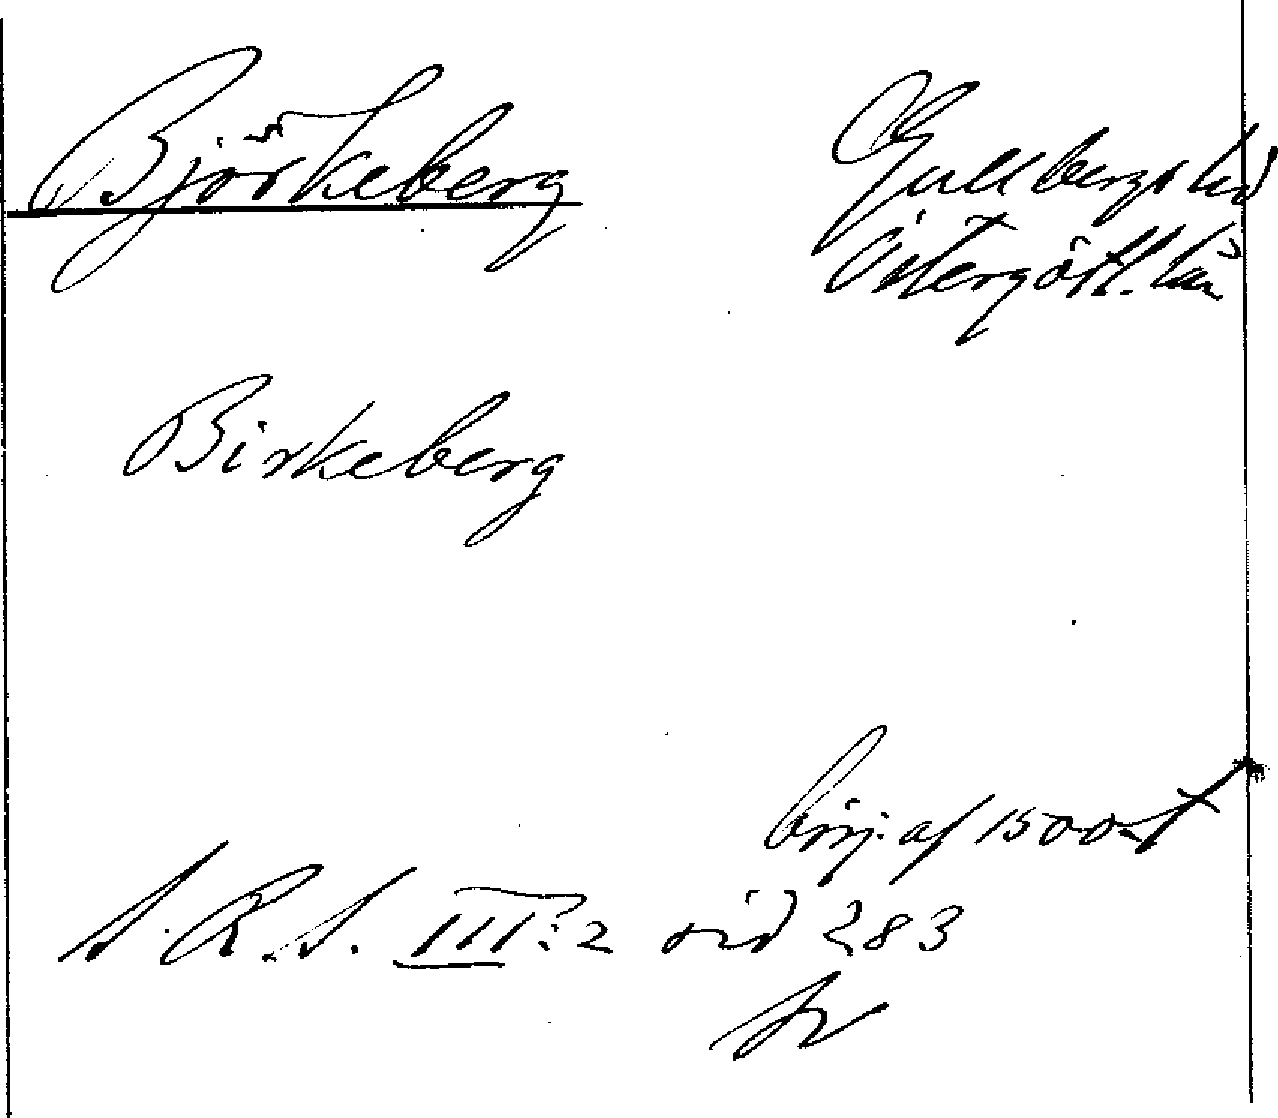 Björkeberg
Gullbergs hd
Östergötl. län
Birkeberg
börj. af 1500-t
S. R. S. III:2 sid 283